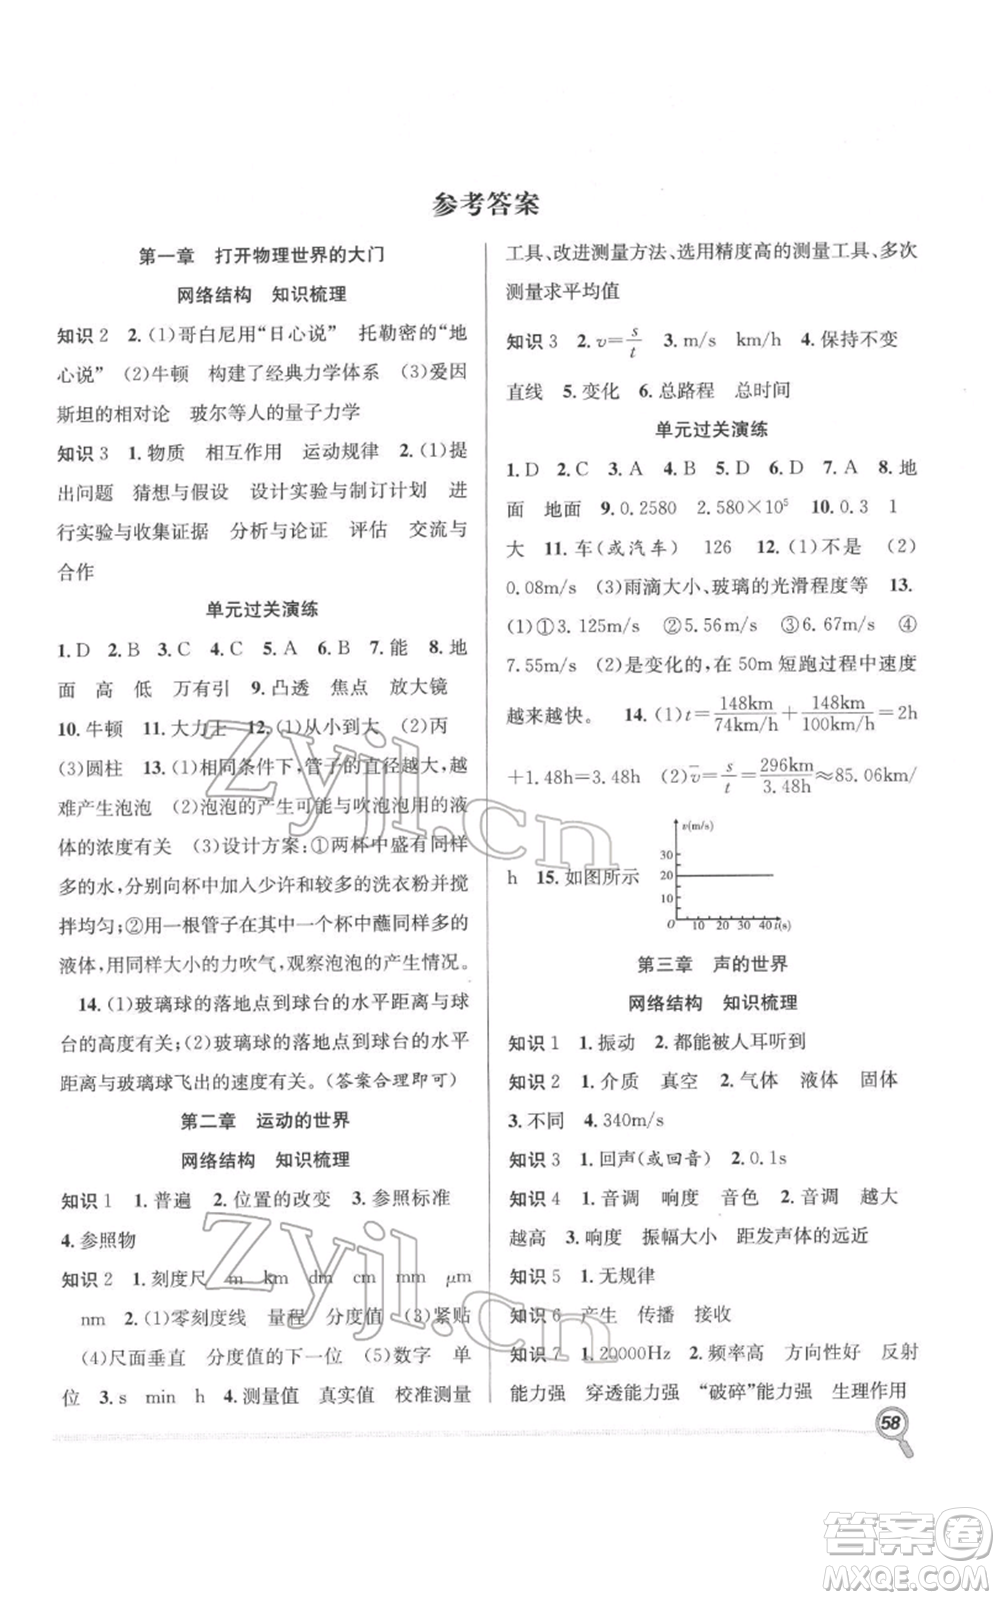 参考答案
第一章　打开物理世界的大门
网络结构　知识梳理
知识2　2.(1)哥白尼用“日心说”　托勒密的“地
心说”　(2)牛顿　构建了经典力学体系　(3)爱因
斯坦的相对论　玻尔等人的量子力学
知识3　1.物质　相互作用　运动规律　2.(1)提
出问题　猜想与假设　设计实验与制订计划　进
行实验与收集证据　分析与论证　评估　交流与
合作
单元过关演练
1.D　2.B　3.C　4.C　5.A　6.B　7.能　8.地
面　高　低　万有引　9.凸透　焦点　放大镜
10.牛顿　11.大力士　12.(1)从小到大　(2)丙
(3)圆柱　13.(1)相同条件下,管子的直径越大,越
难产生泡泡　(2)泡泡的产生可能与吹泡泡用的液
体的浓度有关　(3)设计方案:①两杯中盛有同样
多的水,分别向杯中加入少许和较多的洗衣粉并搅
拌均匀;②用一根管子在其中一个杯中蘸同样多的
液体,用同样大小的力吹气,观察泡泡的产生情况。
14.(1)玻璃球的落地点到球台的水平距离与球
台的高度有关;(2)玻璃球的落地点到球台的水平
距离与玻璃球飞出的速度有关。(答案合理即可)
第二章　运动的世界
网络结构　知识梳理
知识1　1.普遍　2.位置的改变　3.参照标准
4.参照物
知识2　1.刻度尺　m　km　dm　cm　mm　μm
nm　2.(1)零刻度线　量程　分度值　(3)紧贴
(4)尺面垂直　分度值的下一位　(5)数字　单
位　3.s　min　h　4.测量值　真实值　校准测量
工具、改进测量方法、选用精度高的测量工具、多次
测量求平均值
知识3　2.v=s/t　3.m/s　km/h　4.保持不变
直线　5.变化　6.总路程　总时间
单元过关演练
1.D　2.C　3.A　4.B　5.D　6.D　7.A　8.地
面　地面　9.0.2580　2.580×10⁵　10.0.3　1
大　11.车(或汽车)　126　12.(1)不是　(2)
0.08m/s　(3)雨滴大小、玻璃的光滑程度等　13.
(1)①3.125m/s　②5.56m/s　③6.67m/s　④
7.55m/s　(2)是变化的,在50m短跑过程中速度
越来越快。　14.(1)t=148km/74km/h+148km/100km/h=2h
+1.48h=3.48h　(2)v̄=s/t=296km/3.48h≈85.06km/
h　15.如图所示
v(m/s)
30
20
10
O　10　20　30　40 t(s)
第三章　声的世界
网络结构　知识梳理
知识1　1.振动　2.都能被人耳听到
知识2　1.介质　真空　2.气体　液体　固体
3.不同　4.340m/s
知识3　1.回声(或回音)　2.0.1s
知识4　1.音调　响度　音色　2.音调　越大
越高　3.响度　振幅大小　距发声体的远近
知识5　1.无规律
知识6　产生　传播　接收
知识7　1.20000Hz　2.频率高　方向性好　反射
能力强　穿透能力强　“破碎”能力强　生理作用
58
Zyjl.cn
Zyjl.cn
答案卷
MXQE.COM